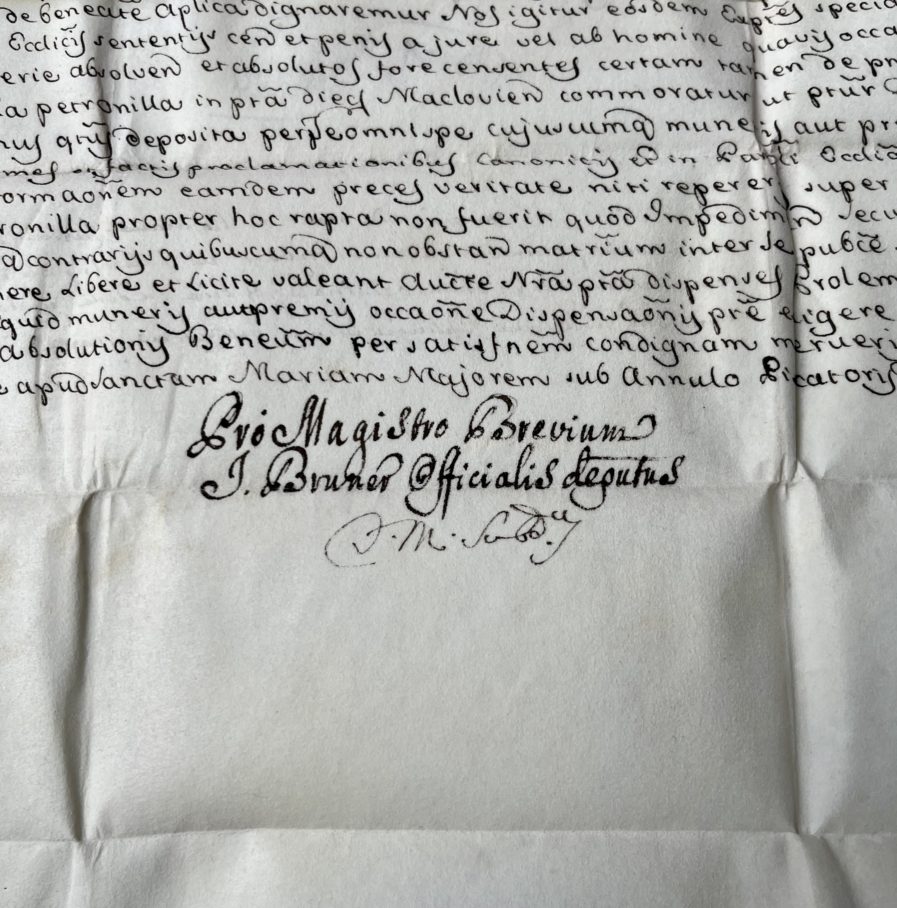 de benecitē Aplica dignaremur Nos igitur eosdem Exprēs specia
Eccliĉis sententijs cen̄ et penis a jure vel ab homine quavis occa
erie absolven̄ et absolutos fore censentes certam tamen de pr
ta petronilla in ptā diec̄ Maclovien̄ commoratur ut ptūr
deposita per omni spe cujuscumq̄ muneris aut pr
factis proclamationibus Canonicis in Eccliā
ormaōnem eamdem preces veritate niti repereris super
ronilla propter hoc rapta non fuerit quōd Impedim̄ Secu
q̄ contrarijs quibuscumq̄ non obstan̄ matrīium inter se pubcē
here Libere et Licite valeant Auctē Nrā ptā dispenses Prolem
quid muneris aut premij occaōne Dispensaōnis prē eligere
absolutionis Beneium̄ per satisfnēm condignam merueri
e apud Sanctam Mariam Majorem sub Annulo Picatoris
Pro Magistro Brevium
J. Bruner Officialis deputus